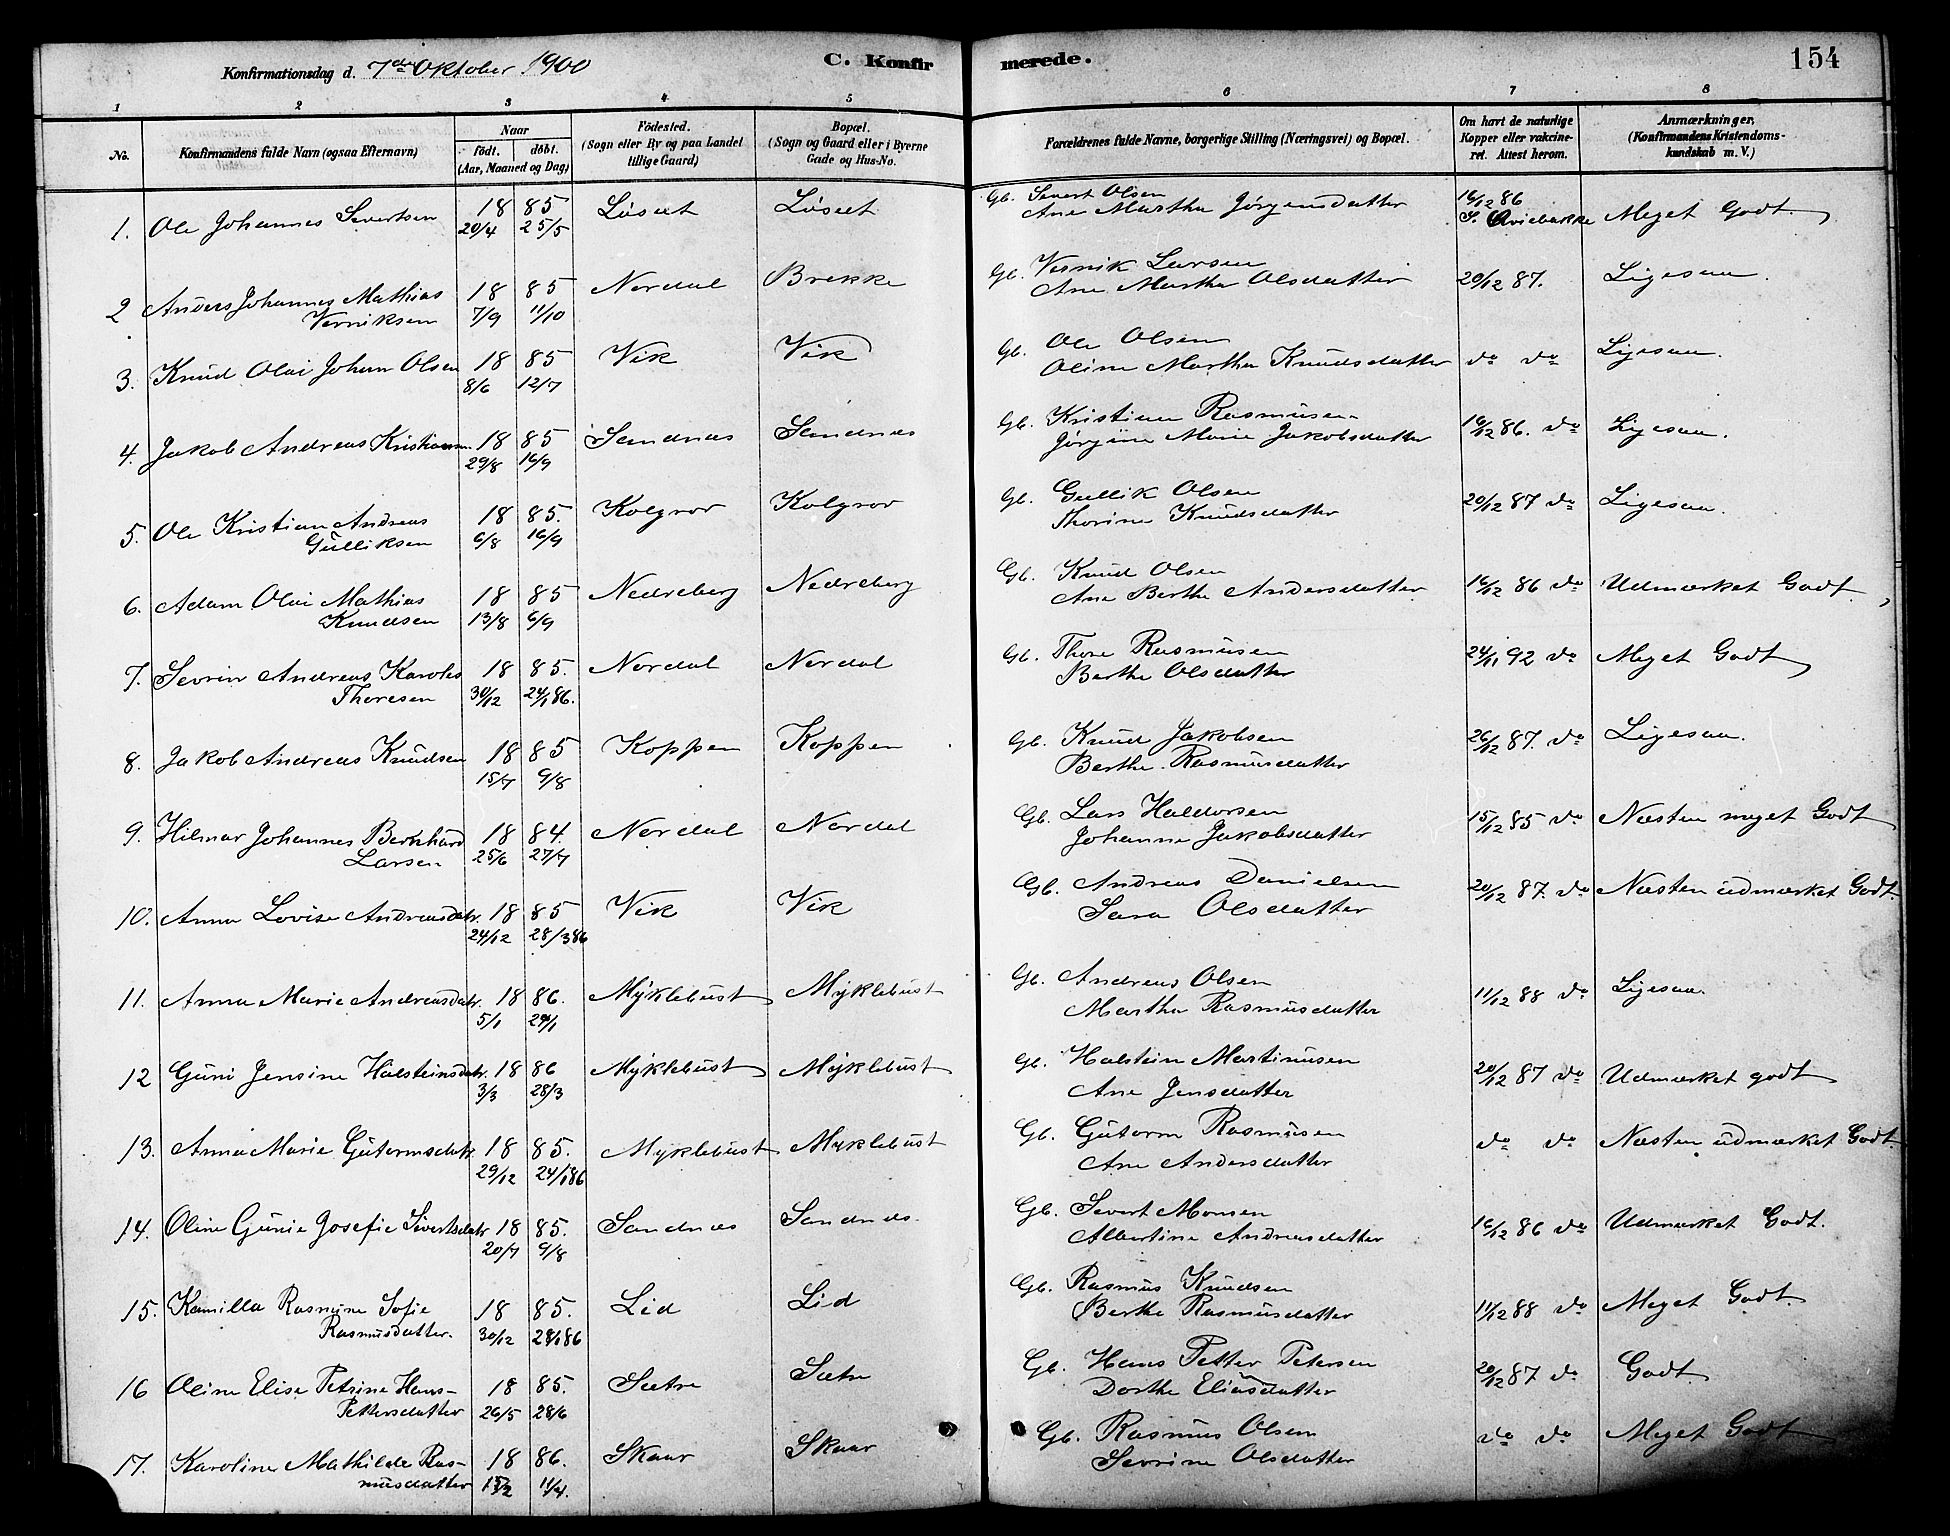 Konfirmationsdag d. 7de Oktober 1900
C. Konfirmerede.
154
1 2 3 4 5 6 7 8
No.
Konfirmandens fulde Navn (ogsaa Efternavn)
Naar
födt. döbt.
(Aar, Maaned og Dag)
Födested.
(Sogn eller By og paa Landet
tillige Gaard)
Bopæl.
(Sogn og Gaard eller i Byerne
Gade og Hus-No.
Forældrenes fulde Navne, borgerlige Stilling (Næringsvei) og Bopæl.
Om havt de naturlige
Kopper eller vakcine-
ret. Attest herom.
Anmærkninger,
(Konfirmandens Kristendoms-
kundskab m. V.)
1. Ole Johannes Severtsen 18 85 Löseet Löseet Gb. Severt Olsen 16/12 86
20/4 25/5 Ane Martha Jörgensdatter S. Qviebakke Meget Godt.
2 Anders Johannes Mathias 18 85 Nordal Brekke Gb. Vernik Larsen 20/12 87. Ligesaa.
Verniksen 7/9 11/10 Ane Martha Olsdatter
3. Knud Olai Johan Olsen 18 85 Vik Vik Gb. Ole Olsen do do Ligesaa.
8/6 12/7 Oline Martha Knudsdatter
4. Jakob Andreas Kristiansen 18 85 Sandnes Sandnes Gb. Kristian Rasmusen 16/12 86. do Ligesaa.
29/8 16/9 Jörgine Marie Jakobsdatter
5. Ole Kristian Andreas 18 85. Kolgrov Kolgrov Gb. Gullik Olsen 20/12 87 do Ligesaa.
Gulliksen 6/8 16/9 Thorine Knudsdatter
6. Adam Olai Mathias 18 85 Nedreberg Nedreberg Gb. Knud Olsen 16/12 86 do Udmærket Godt.
Knudsen 13/8 6/9 Ane Berthe Andersdatter
7. Sevrin Andreas Karoles 18 85. Nordal Nordal Gb. Thore Rasmusen 24/11 92 do Meget Godt
Thoresen 30/12 24/1 86. Berthe Olsdatter
8. Jakob Andreas Knudsen 18 85 Koppen Koppen Gb. Knud Jakobsen 26/12 87. do Ligesaa.
15/7 9/8 Berthe Rasmusdatter
9. Hilmar Johannes Bernhard 18 84 Nordal Nordal Gb. Lars Haldorsen 15/12 85 do Næsten meget Godt
Larsen 25/6 27/7 Johanne Jakobsdatter
10. Anna Lovise Andreasdatr. 18 85 Vik Vik Gb. Andreas Danielsen 20/12 87. do Næsten udmærket Godt.
24/12 28/3 86 Sara Olsdatter
11. Anna Marie Andreasdatr. 18 86. Myklebust Myklebust Gb. Andreas Olsen 11/12 88 do Ligesaa.
5/1 24/1 Martha Rasmusdatter
12 Guni Jensine Halsteinsdatr. 18 86 Myklebust Myklebust Gb. Halstein Martinusen 20/12 87 do Udmærket godt
3/3 28/3 Ane Jensdatter
13. Anna Marie Gutormsdatr. 18 85. Myklebust Myklebust Gb. Gutorm Rasmusen do do Næsten udmærket Godt.
29/12 24/1 86 Ane Andersdatter
14. Oline Gunie Josefie Sivertsdatr 18 85. Sandnes Sandnes. Gb. Severt Monsen 16/12 86 do Udmærket Godt.
20/7 9/8 Albertine Andreasdatter
15. Kamilla Rasmine Sofie 18 85. Lid Lid Gb. Rasmus Knudsen 11/12 88 do Meget Godt.
Rasmusdatter. 30/12 28/1 86 Berthe Rasmusdatter
16 Oline Elise Petrine Hans- 18 85. Sætre Sætre Gb. Hans Petter Petersen 20/12 87 do Godt.
Pettersdatter 26/5 28/6 Dorthe Eliasdatter
17. Karoline Mathilde Ras- 18 86. Skaar Skaar Gb. Rasmus Olsen do do Meget Godt
musdatter 15/2 11/4. Sevrine Olsdatter